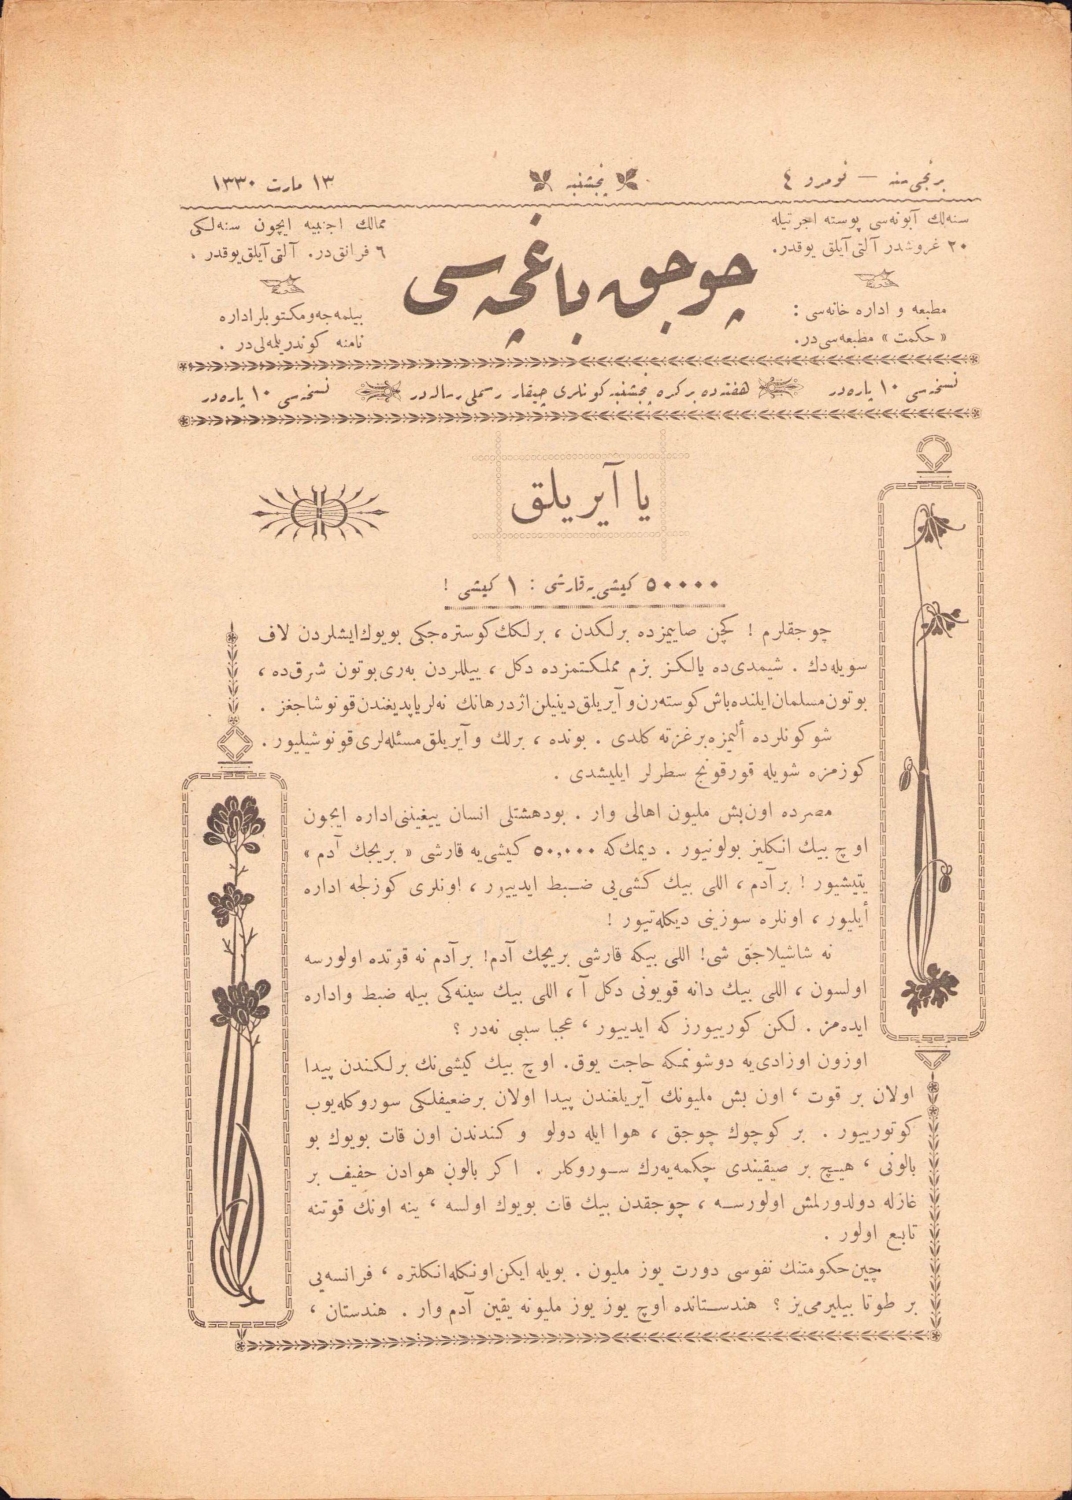 برنجی سنه — نومرو ٤
پنجشنبه
١٣ مارت ١٣٣٠
سنه‌لك آبونه‌سی پوسته اجرتیله
٢٠ غروشدر آلتی آیلق یوقدر.
مطبعه و اداره خانه‌سی :
« حكمت » مطبعه‌سی‌در.
چوجق باغچه‌سی
ممالك اجنبیه ایچون سنه‌لكی
٦ فرانق‌در. آلتی آیلق یوقدر .
بیلمه‌جه و مكتوبلر اداره
نامنه كوندریله‌لی‌در .
نسخه‌سی ١٠ پاره‌در
هفته‌ده بر كره پنجشنبه كونلری چیقار رسملی رساله‌در
نسخه‌سی ١٠ پاره‌در
یا آیریلق
٥٠٠٠٠ كیشی‌یه قارشی : ١ كیشی !
چوجقلرم ! كچن صاییمزده برلكدن ، برلكك كوستره‌جكی بویوك ایشلردن لاف
سویله‌دك . شیمدی‌ده یالكز بزم مملكتمزده دكل ، ییللردن به‌ری بوتون شرق‌ده ،
بوتون مسلمان ایلنده باش كوسته‌رن و آیریلق دینیلن اژدرهانك نه‌لر یاپدیغندن قونوشاجغز .
شو كونلرده ألیمزه بر غزته كلدی . بونده ، برلك و آیریلق مسئله‌لری قونوشیلیور .
كوزمزه شویله قورقونج سطرلر ایلیشدی .
مصرده اون‌بش ملیون اهالی وار . بودهشتلی انسان ییغیننی اداره ایچون
اوچ بیك انكلیز بولونیور . دیمك‌كه ٥٠,٠٠٠ كیشی‌یه قارشی « بریجك آدم »
یتیشیور ! بر آدم ، اللی بیك كشی‌یی ضـبط ایدییور ، اونلری كوزلجه اداره
أیلیور ، اونلره سوزینی دیكله‌تیور !
نه شاشیلاجق شی! اللی بیكه قارشی بریجك آدم! بر آدم نه قوتده اولورسه
اولسون ، اللی بیك دانه قویونی دكل آ ، اللی بیك سینه‌كی بیله ضبط و اداره
ایده‌مز . لكن كورییورز كه ایدییور ، عجبا سببی نه‌در ؟
اوزون اوزادی‌یه دوشونمكه حاجت یوق. اوچ بیك كیشی‌نك برلكـندن پیدا
اولان بر قوت ، اون بش ملیونك آیریلغندن پیدا اولان بر ضعیفلكی سوروكله‌یوب
كوتورییور . بر كوچوك چوجق ، هوا ایله دولو و كندندن اون قات بویوك بو
بالونی ، هیـچ بر صیقیندی چكمه‌یه‌رك سـوروكلر . اكر بالون هوادن خفیف بر
غازله دولدورلمش اولورسـه ، چوجقدن بیك قات بویوك اولسه ، ینه اونك قوتنه
تابع اولور .
چین حكومتنك نفوسی دورت یوز ملیون . بویله ایكن اونكله انكلتره ، فرانسه‌یی
بر طوتا بیلیرمی‌یز ؟ هندسـتانده اوچ یوز یوز ملیونه یقین آدم وار . هندستان ،